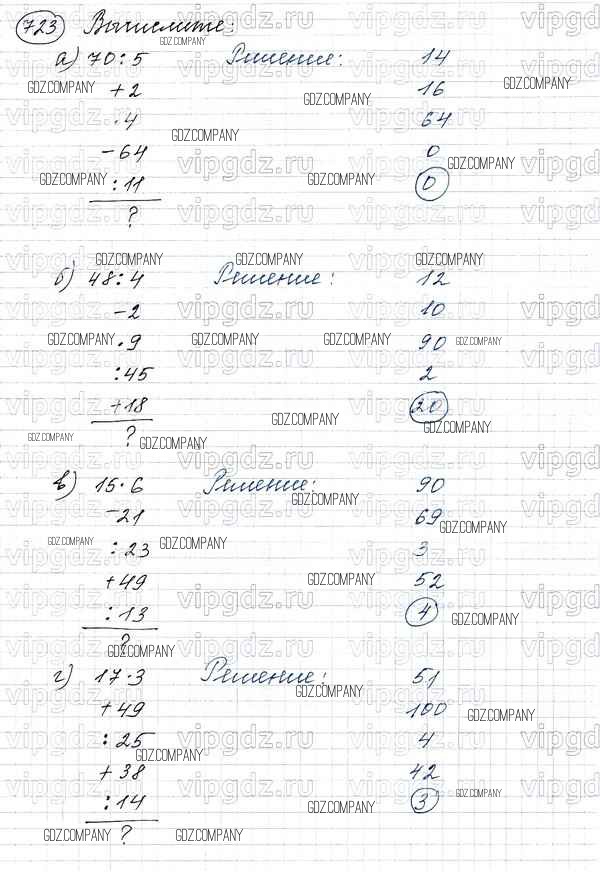 723 Вычислите:
а) 70:5 Решение: 14
+2 16
·4 64
-64 0
:11 0
?
б) 48:4 Решение: 12
-2 10
·9 90
:45 2
+18 20
?
в) 15·6 Решение: 90
-21 69
:23 3
+49 52
:13 4
?
г) 17·3 Решение: 51
+49 100
:25 4
+38 42
:14 3
?
GDZ.COMPANY
vipgdz.ru